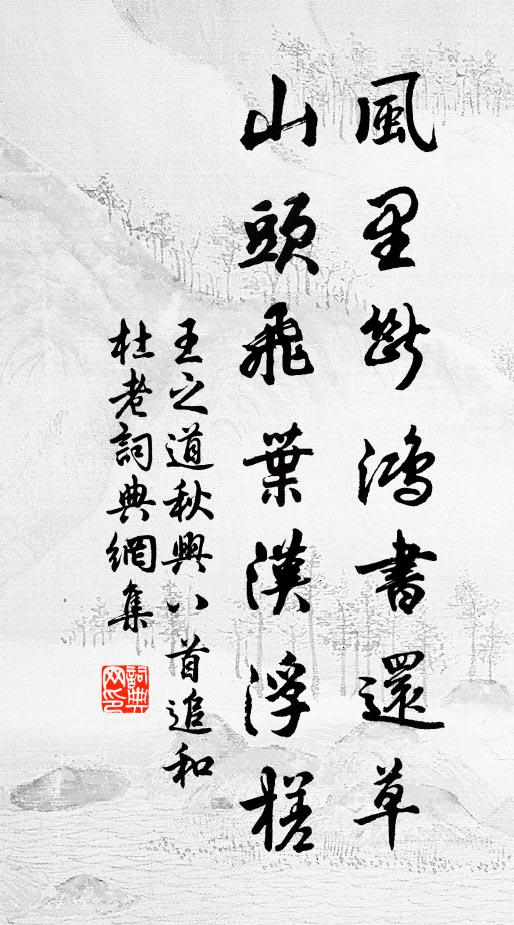 風里斷鴻書還草
山頭飛葉漢浮槎
王之道秋興八首追和
杜老詞典網集
詞典网印